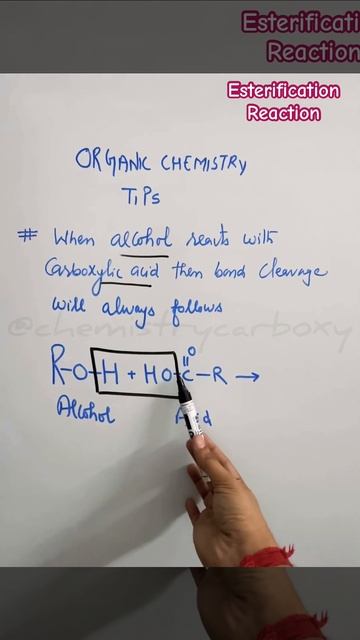 Esterificati
Reaction
Esterification
Reaction
ORGANIC CHEMISTRY
TIPS
# When alcohol reacts with
Carboxylic acid then bond cleavage
will always follows
@chemistrycarboxy
O
R-O-H + HO-C-R →
Alcohol